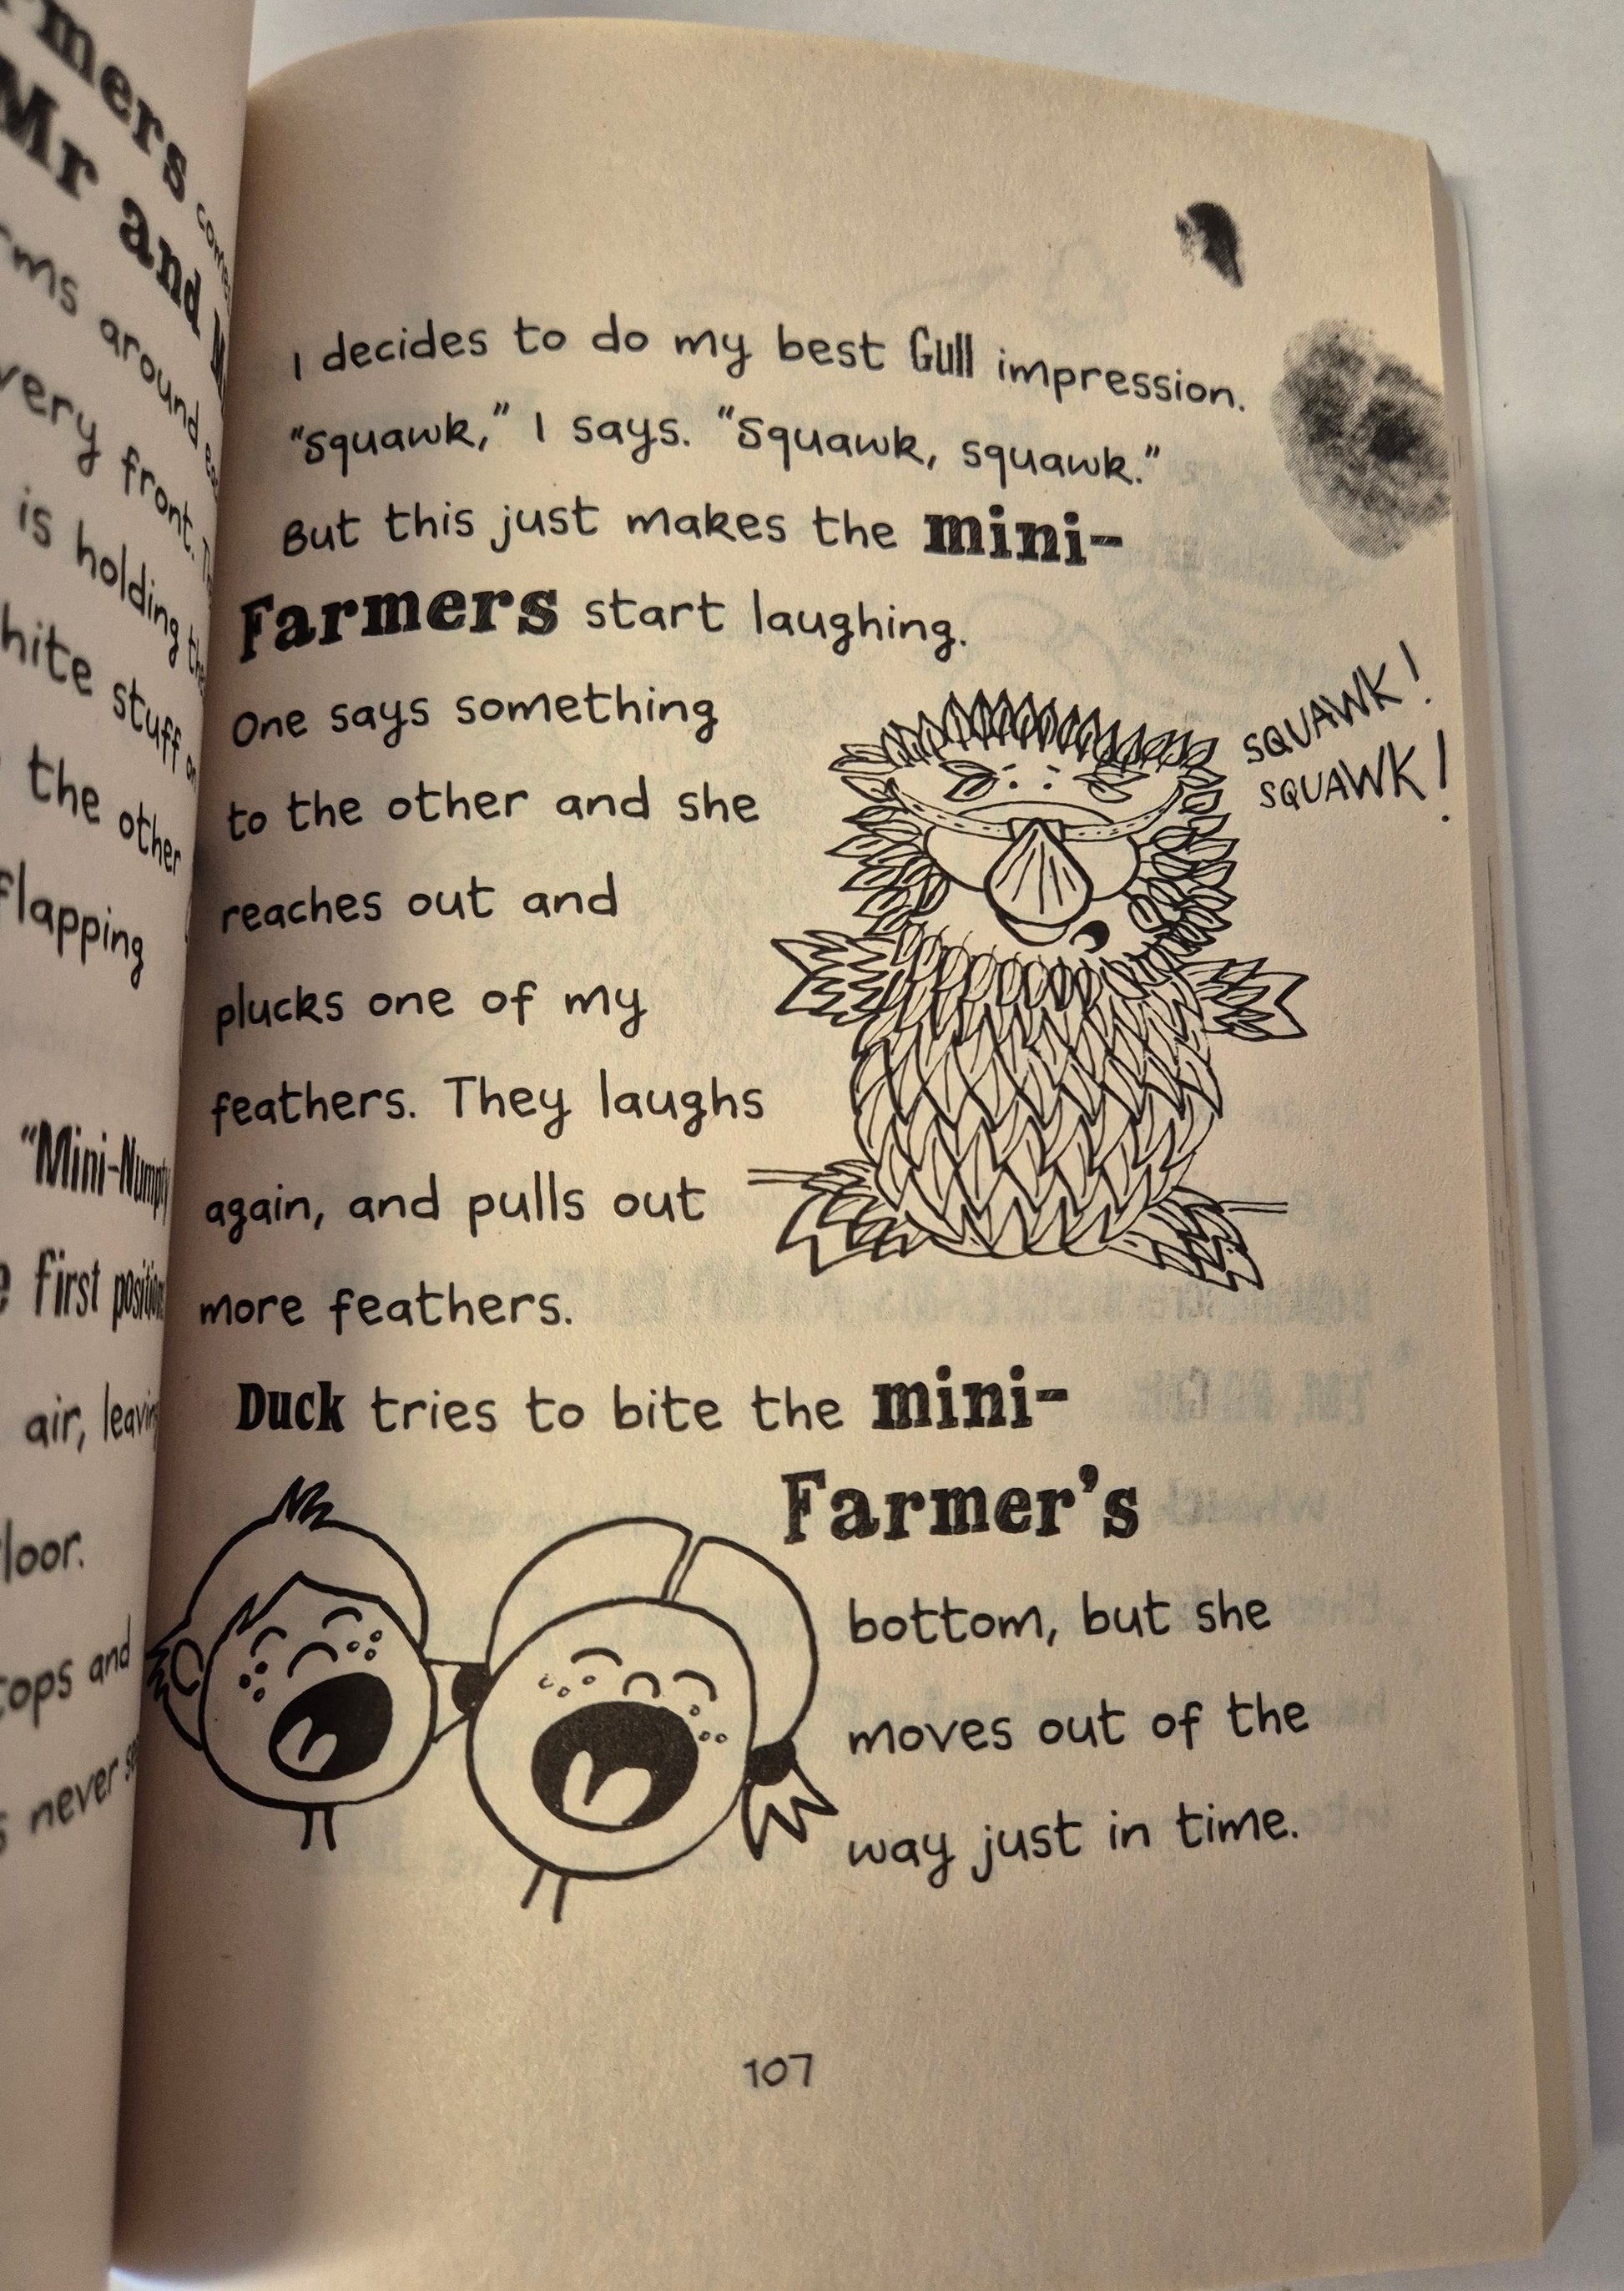 Mr and
around
very front.
is holding
stuff
the other
flapping
"Mini-
first
air,
and
never
I decides to do my best Gull impression.
"Squawk," I says. "Squawk, squawk."
But this just makes the mini-
Farmers start laughing.
One says something
to the other and she
reaches out and
plucks one of my
feathers. They laughs
again, and pulls out
more feathers.
SQUAWK!
SQUAWK!
Duck tries to bite the mini-
Farmer's
bottom, but she
moves out of the
way just in time.
107